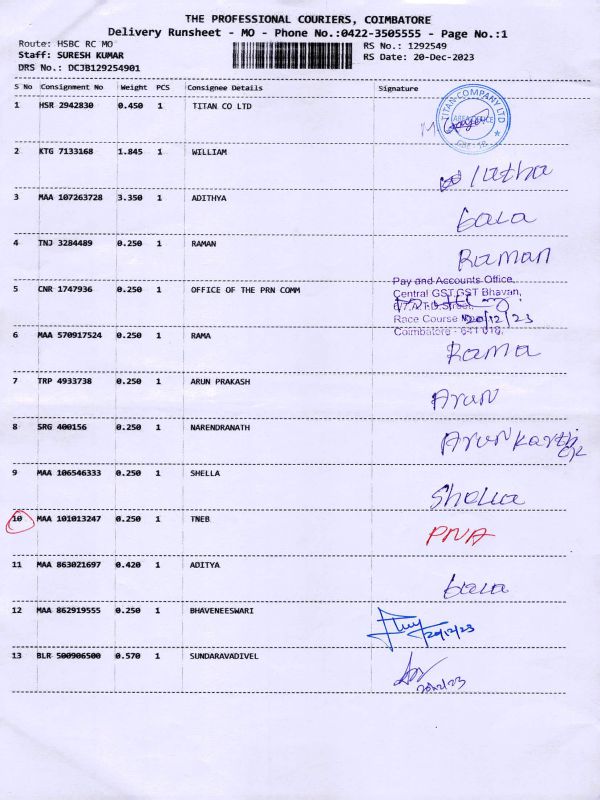 THE PROFESSIONAL COURIERS, COIMBATORE
Delivery Runsheet - MO - Phone No.:0422-3505555 - Page No.:1
Route: HSBC RC MO
RS No.: 1292549
Staff: SURESH KUMAR
RS Date: 20-Dec-2023
DRS No.: DCJB129254901
S No Consignment No Weight PCS Consignee Details Signature
1 HSR 2942830 0.450 1 TITAN CO LTD
TITAN COMPANY LTD
AREA OFFICE
2 KTG 7133168 1.845 1 WILLIAM latha
3 MAA 107263728 3.350 1 ADITHYA Gala
4 TNJ 3284489 0.250 1 RAMAN Raman
5 CNR 1747936 0.250 1 OFFICE OF THE PRN COMM
Pay and Accounts Office,
Central GST,GST Bhavan,
6/7,A.T.D.Street,
Race Course 20/12/23
Coimbatore - 641 018.
6 MAA 570917524 0.250 1 RAMA Rama
7 TRP 4933738 0.250 1 ARUN PRAKASH Arun
8 SRG 400156 0.250 1 NARENDRANATH Arun Karthi
9 MAA 106546333 0.250 1 SHELLA Shella
10 MAA 101013247 0.250 1 TNEB PNA
11 MAA 863021697 0.420 1 ADITYA Gala
12 MAA 862919555 0.250 1 BHAVENEESWARI 20/12/23
13 BLR 500906500 0.570 1 SUNDARAVADIVEL 20/12/23